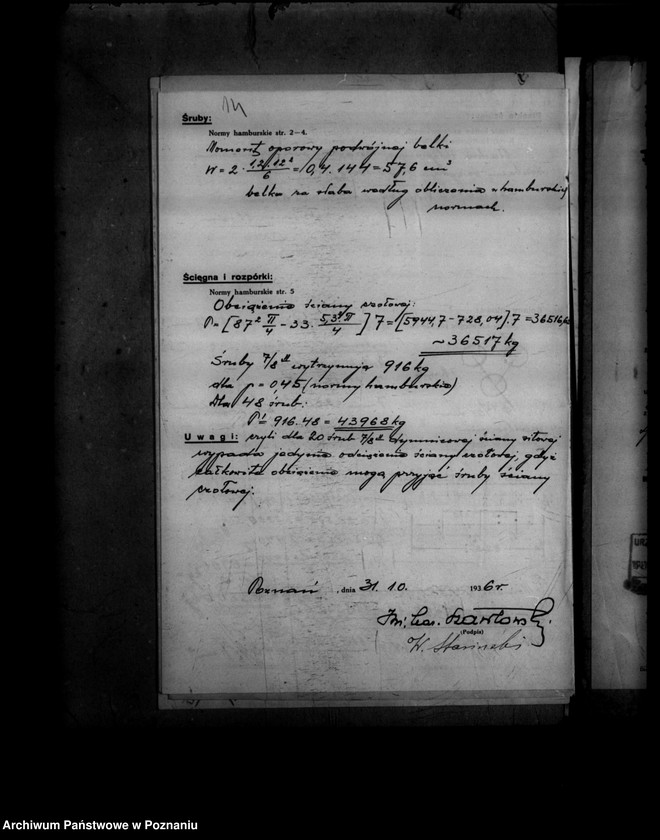 14
Śruby:
Normy hamburskie str. 2—4.
Moment oporowy podwójnej belki
W = 2 · 1,2 · 12² / 6 = 0,4 . 144 = 57,6 cm³
belka za słaba według obliczenia w hamburskich
normach.
Ścięgna i rozpórki:
Normy hamburskie str. 5
Obciążenie ściany czołowej:
P = [87² π/4 − 33 · 5,3² π/4] 7 = [5944,7 − 728,04] . 7 = 36516,6
~ 36517 kg
Śruby 7/8" wytrzymują 916 kg
dla p = 0,45 (normy hamburskie)
Dla 48 śrub:
P' = 916 . 48 = 43968 kg
Uwagi: czyli dla 20 śrub 7/8" dymnicowej ściany sitowej
wypada jedynie odciążenie ściany czołowej, gdyż
całkowite obciążenie mogą przyjąć śruby ściany
czołowej.
Poznań , dnia 31. 10. 1936 r.
(Podpis)
Archiwum Państwowe w Poznaniu